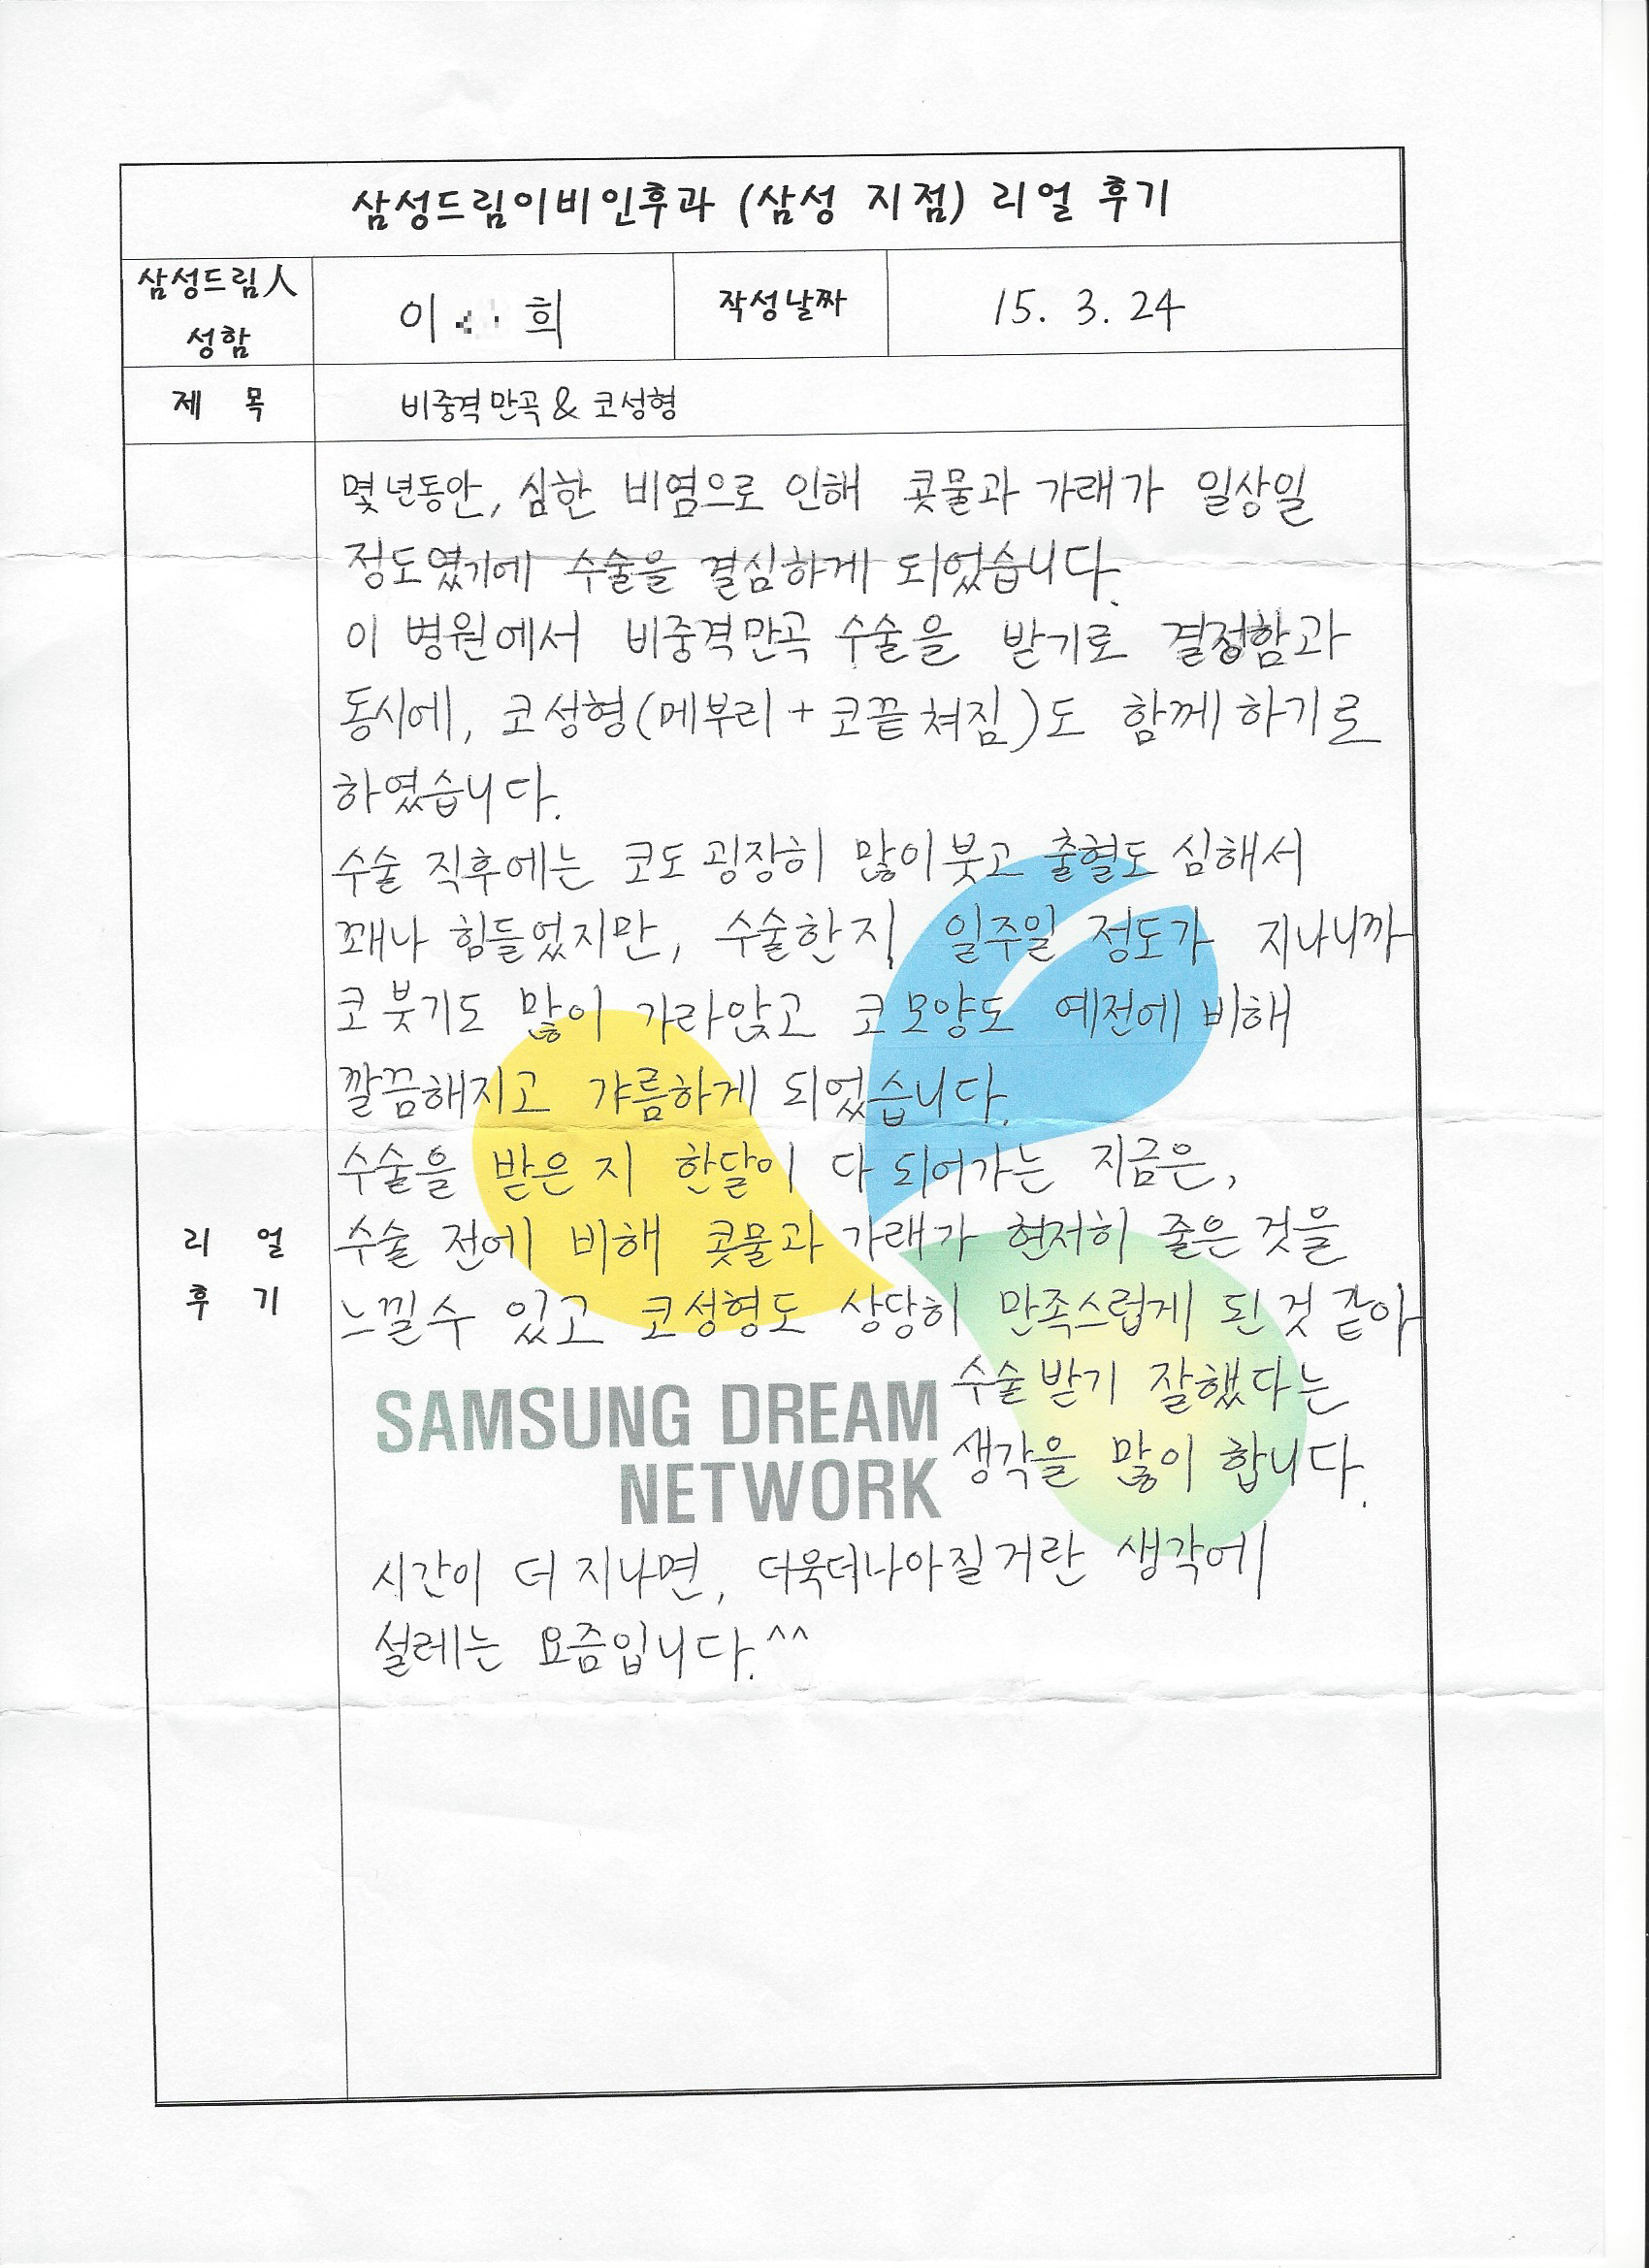 삼성드림이비인후과 (삼성 지점) 리얼 후기
삼성드림人
성함
이 희
작성날짜
15. 3. 24
제 목
비중격만곡 & 코성형
몇년동안, 심한 비염으로 인해 콧물과 가래가 일상일
정도였기에 수술을 결심하게 되었습니다.
이 병원에서 비중격만곡 수술을 받기로 결정함과
동시에, 코성형(메부리 + 코끝쳐짐)도 함께하기로
하였습니다.
수술 직후에는 코도 굉장히 많이 붓고 출혈도 심해서
꽤나 힘들었지만, 수술한지 일주일 정도가 지나니까
코 붓기도 많이 가라앉고 코모양도 예전에 비해
깔끔해지고 갸름하게 되었습니다.
수술을 받은 지 한달이 다 되어가는 지금은,
리 얼
후 기
수술 전에 비해 콧물과 가래가 현저히 줄은 것을
느낄수 있고 코성형도 상당히 만족스럽게 된 것 같아
수술받기 잘했다는
생각을 많이 합니다.
SAMSUNG DREAM
NETWORK
시간이 더 지나면, 더욱더나아질거란 생각에
설레는 요즘입니다.^^